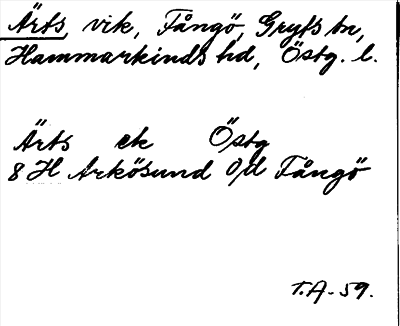 Ärts, vik, Fångö, Gryts sn,
Hammarkinds hd, Östg. l.
Ärts ek Östg
8 H Arkösund O/d Fångö
T.A-59.